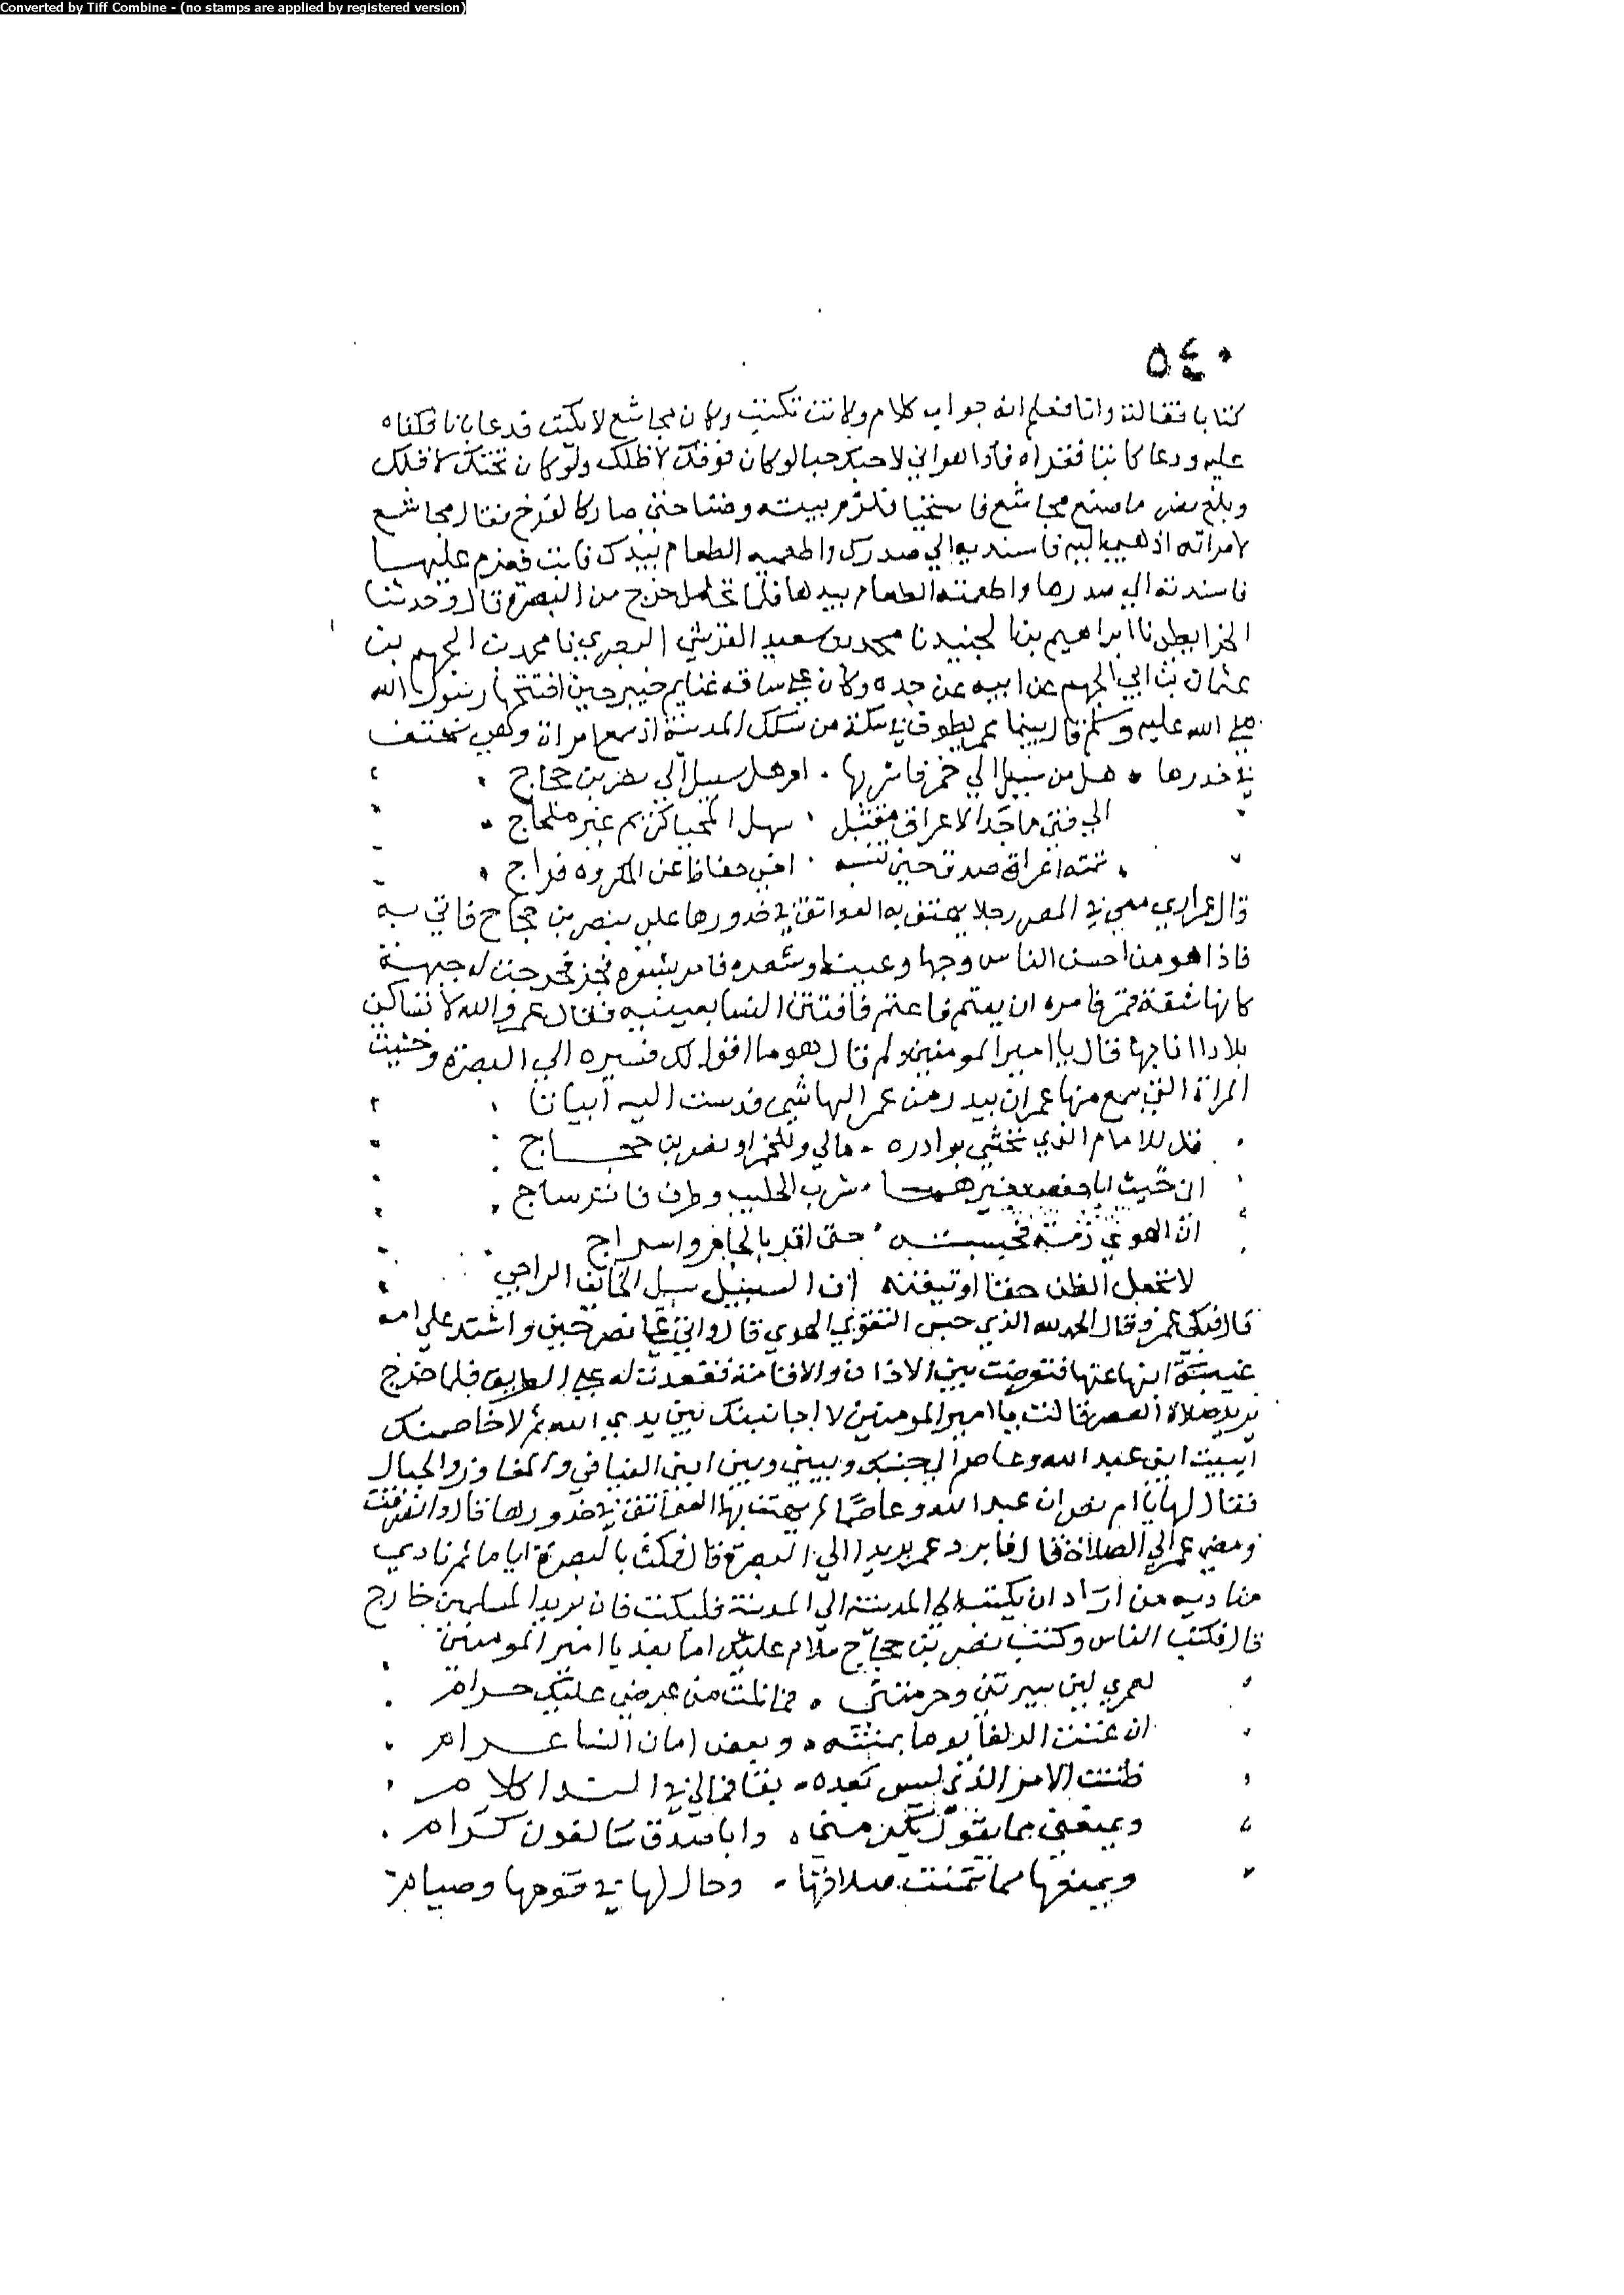 Converted by Tiff Combine - (no stamps are applied by registered version)
٥٤٠
كتابا فقالت وانا فعلم انه جواب كلام ولانت تكتب وكان مجاشع لا يكتب فدعا بانا فكفاه
عليه ودعا كاتبا فقراه فاذا هو اني لاحبك حبا لو كان فوقك لاظلك ولو كان تحتك لاقلك
وبلغ نصر ما صنع مجاشع فاستحيا فلزم بيته وضنا حتى صار كالفرخ فقال مجاشع
لامراته اذهبي اليه فاسنديه الي صدرك واطعميه الطعام بيدك فابت فعزم عليها
فاسندته الي صدرها واطعمته الطعام بيدها فلما تحامل خرج من البصرة قال وحدثنا
الخرايطي نا ابراهيم بن الجنيد نا محمد بن سعيد القرشي البصري نا محمد بن الجهم بن
عثمان بن ابي الجهم عن ابيه عن جده وكان علي ساقة غنايم خيبر حين افتتحها رسول الله
صلي الله عليه وسلم قال بينما عمر يطوف في سكة من سكك المدينة اذ سمع امراة وهي تهتف
في خدرها هل من سبيل الي خمر فاشربها ام هل سبيل الي نصر بن حجاج
الي فتى ماجد الاعراق مقتبل سهل المحيا كريم غير ملجاج
تمته اعراق صدق حين تنسبه اخي حفاظ عن المكروه فراج
قال عمر اري معي في المصر رجلا يهتف به العواتق في خدورها علي بنصر بن حجاج فاتي به
فاذا هو من احسن الناس وجها وعينا وشعرا فامر بشعره فجز فخرجت له جبهة
كانها شقة قمر فامره ان يعتم فاعتم فافتتن النسا بعينيه فقال عمر والله لا تساكني
بلادا انا بها قال يا امير المومنين ولم قال هو ما اقول لك فسيره الي البصرة وخشيت
المراة التي سمع منها عمر ان يبدر من عمر اليها شي فدست اليه ابياتا
قل للامام الذي تخشي بوادره مالي وللخمر او نصر بن حجاج
اني عنيت ابا حفص بغيرهما شرب الحليب وطرف فاتر ساج
ان الهوي زمه فحبسته حتى اقر بالجام واسراج
لا تجعل الظن حقا او تيقنه ان السبيل سبيل الخائف الراجي
قال فبكي عمر وقال الحمد لله الذي حبس التقوي الهوي قال واتي علي نصر حين واشتد علي امه
غيبة ابنها عنها فتعرضت بين الاذان والاقامة فقعدت له علي الطريق فلما خرج
يريد صلاة العصر قالت يا امير المومنين لاجاثينك بين يدي الله ثم لاخاصمنك
ايبيت ابني عبد الله وعاصم الي جنبك وبيني وبين ابني الفيافي والمفاوز والجبال
فقال لها يا ام نصر ان عبد الله وعاصما لم يهتف بهما العواتق في خدورها قال وانصرفت
ومضي عمر الي الصلاة قال فابرد عمر بريدا الي البصرة قال فمكث بالبصرة اياما ثم نادي
مناديه من اراد ان يكتب الي المدينة الي المدينة فليكتب فان بريد المسلمين خارج
قال فكتب الناس وكتب نصر بن حجاج سلام عليك اما بعد يا امير المومنين
لعمري لين سيرتني وحرمتني فما نلت من عرضي عليك حرام
ان غنت الدلفا يوما بمنية وبعض اماني النسا غرام
ظننت الامر الذي ليس بعده بقا فمالي في الندا كلام
ويمنعني مما تقول تكرمي وابا صدق سالفون كرام
ويمنعها مما تمنت صلاتها وحال لها في قومها وصيام